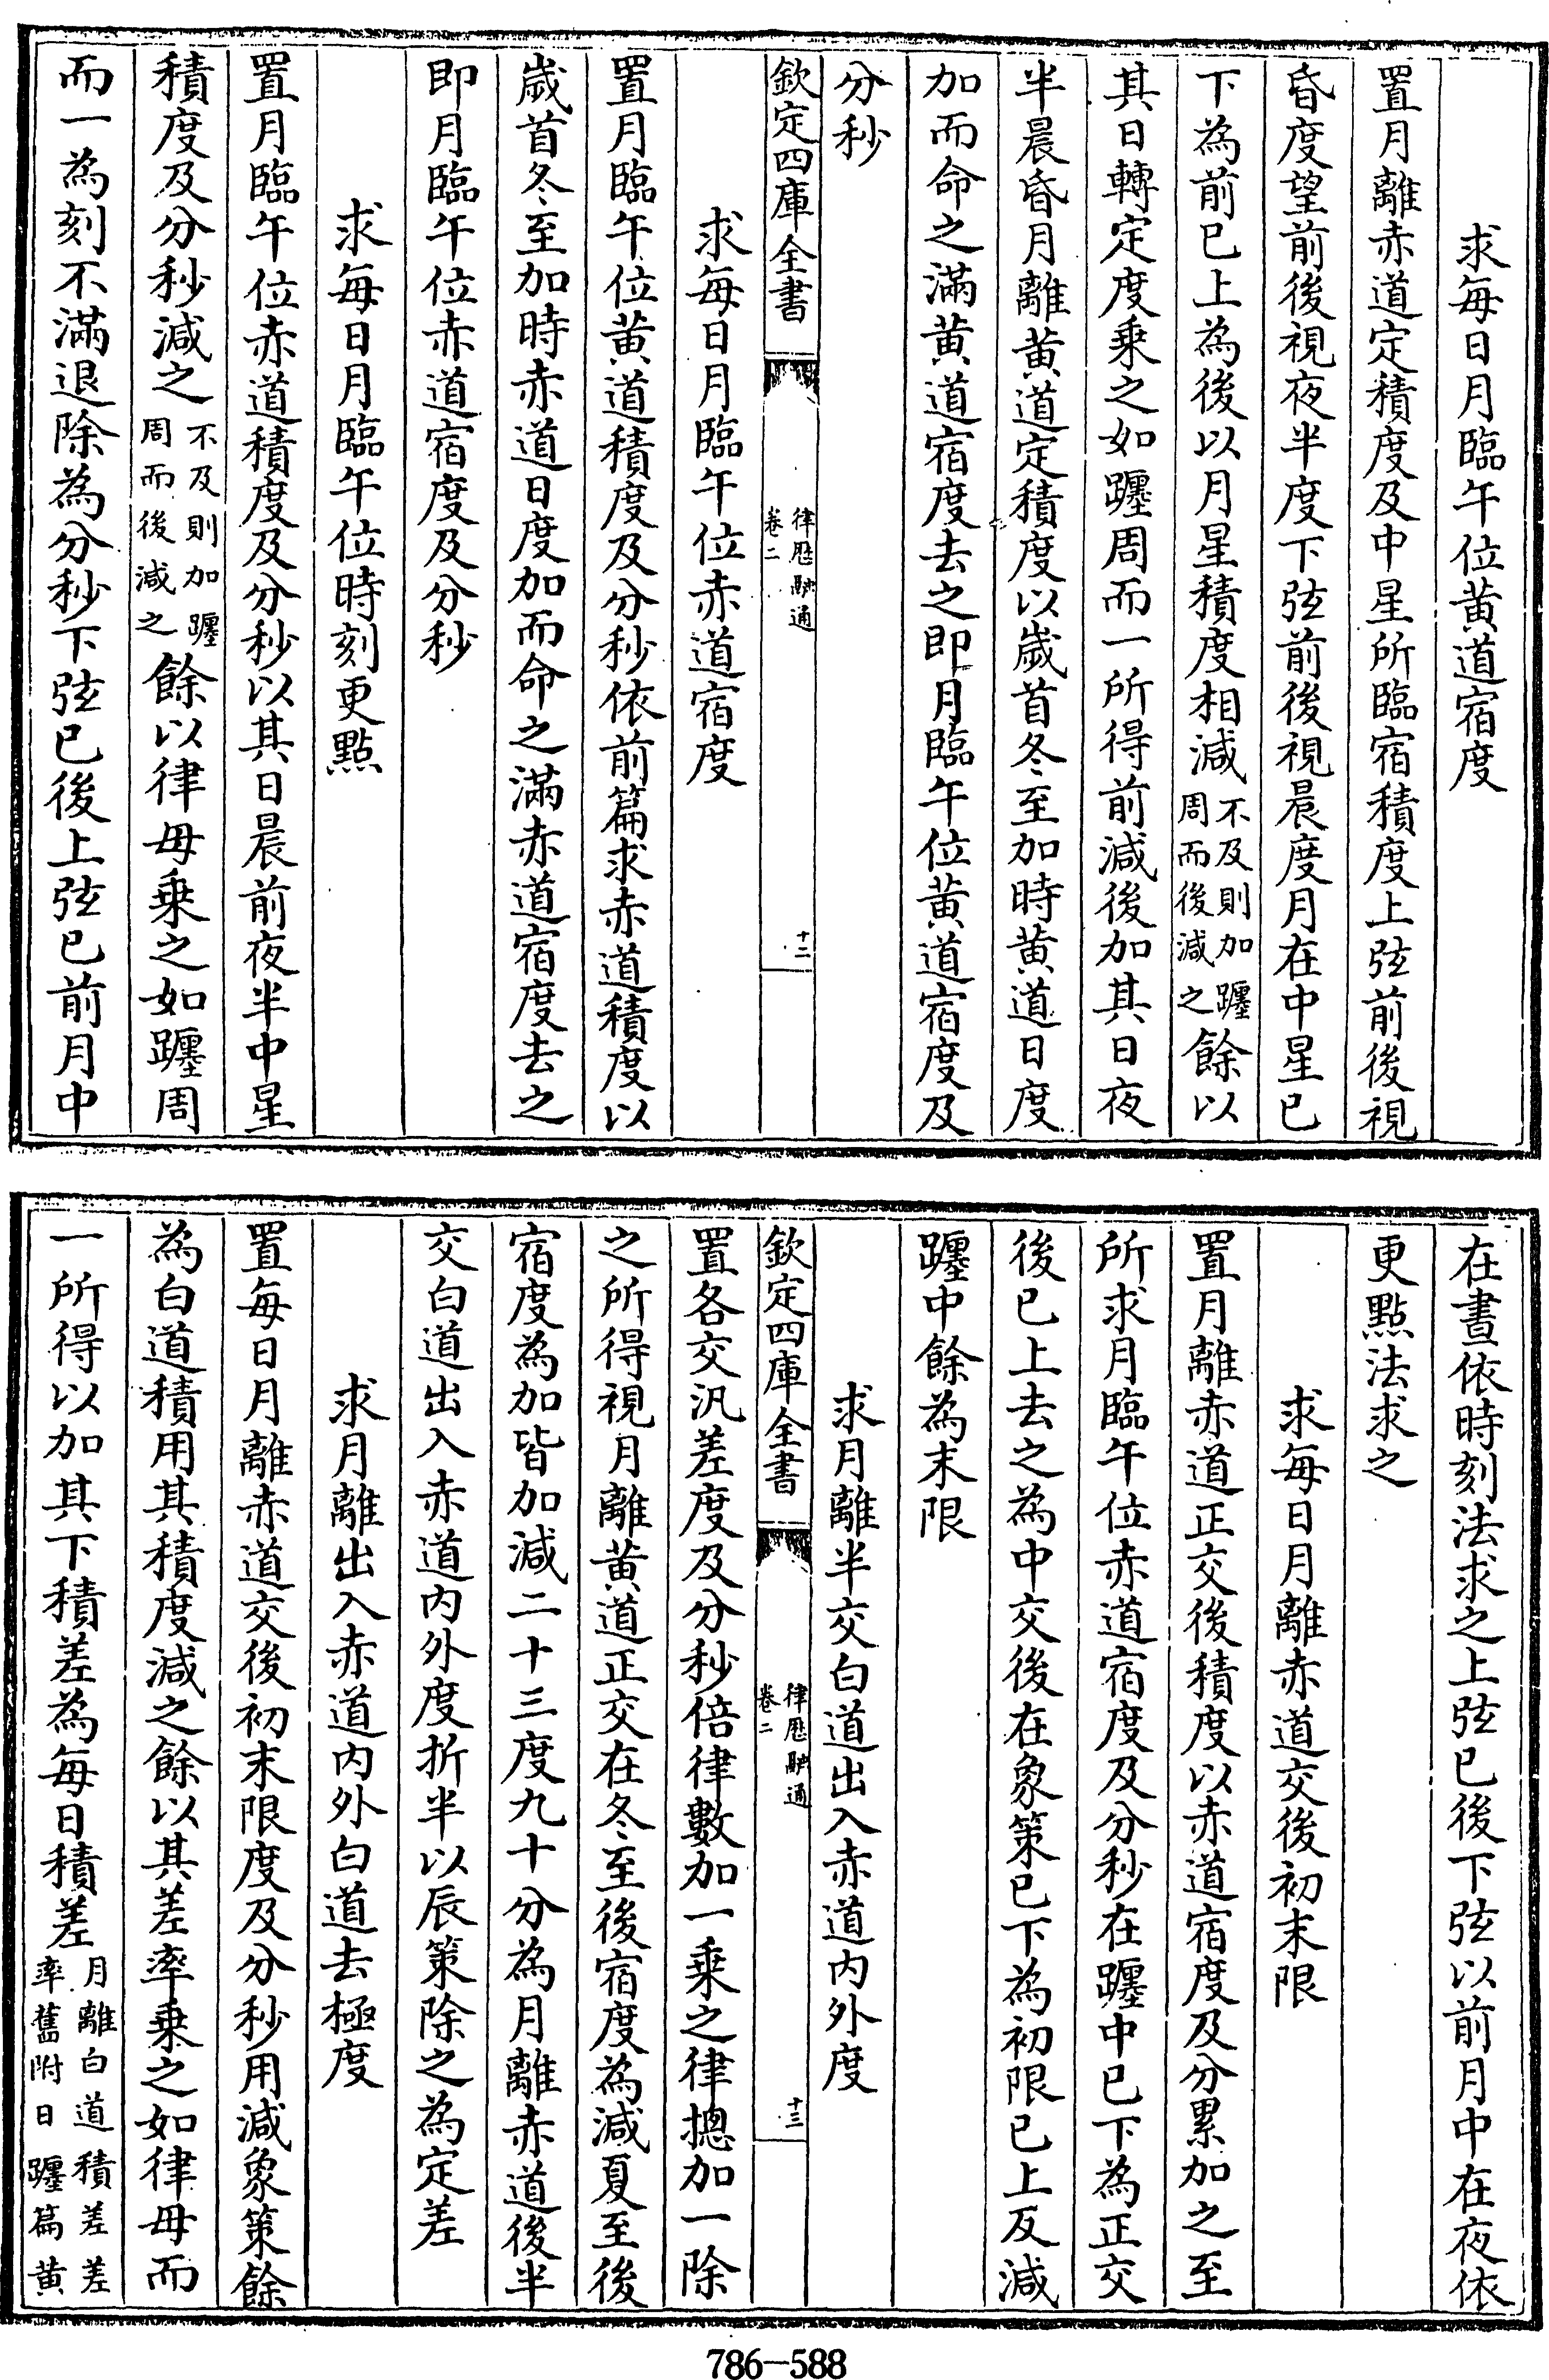 求每日月臨午位黃道宿度
置月離赤道定積度及中星所臨宿積度上弦前後視
昏度望前後視夜半度下弦前後視晨度月在中星已
下為前已上為後以月星積度相減不及則加躔周而後減之餘以
其日轉定度乘之如躔周而一所得前減後加其日夜
半晨昏月離黃道定積度以嵗首冬至加時黃道日度
加而命之滿黃道宿度去之即月臨午位黃道宿度及
分秒
欽定四庫全書
律厯融通
卷二
十二
求每日月臨午位赤道宿度
置月臨午位黃道積度及分秒依前篇求赤道積度以
嵗首冬至加時赤道日度加而命之滿赤道宿度去之
即月臨午位赤道宿度及分秒
求每日月臨午位時刻更點
置月臨午位赤道積度及分秒以其日晨前夜半中星
積度及分秒減之不及則加躔周而後減之餘以律母乘之如躔周
而一為刻不滿退除為分秒下弦已後上弦已前月中
在晝依時刻法求之上弦已後下弦以前月中在夜依
更點法求之
求每日月離赤道交後初末限
置月離赤道正交後積度以赤道宿度及分累加之至
所求月臨午位赤道宿度及分秒在躔中已下為正交
後已上去之為中交後在象策已下為初限已上反減
躔中餘為末限
求月離半交白道出入赤道内外度
欽定四庫全書
律厯融通
卷二
十三
置各交汎差度及分秒倍律數加一乘之律摠加一除
之所得視月離黃道正交在冬至後宿度為減夏至後
宿度為加皆加減二十三度九十分為月離赤道後半
交白道出入赤道内外度折半以辰策除之為定差
求月離出入赤道内外白道去極度
置每日月離赤道交後初末限度及分秒用減象策餘
為白道積用其積度減之餘以其差率乘之如律母而
一所得以加其下積差為每日積差月離白道積差差率舊附日躔篇黃
786-588